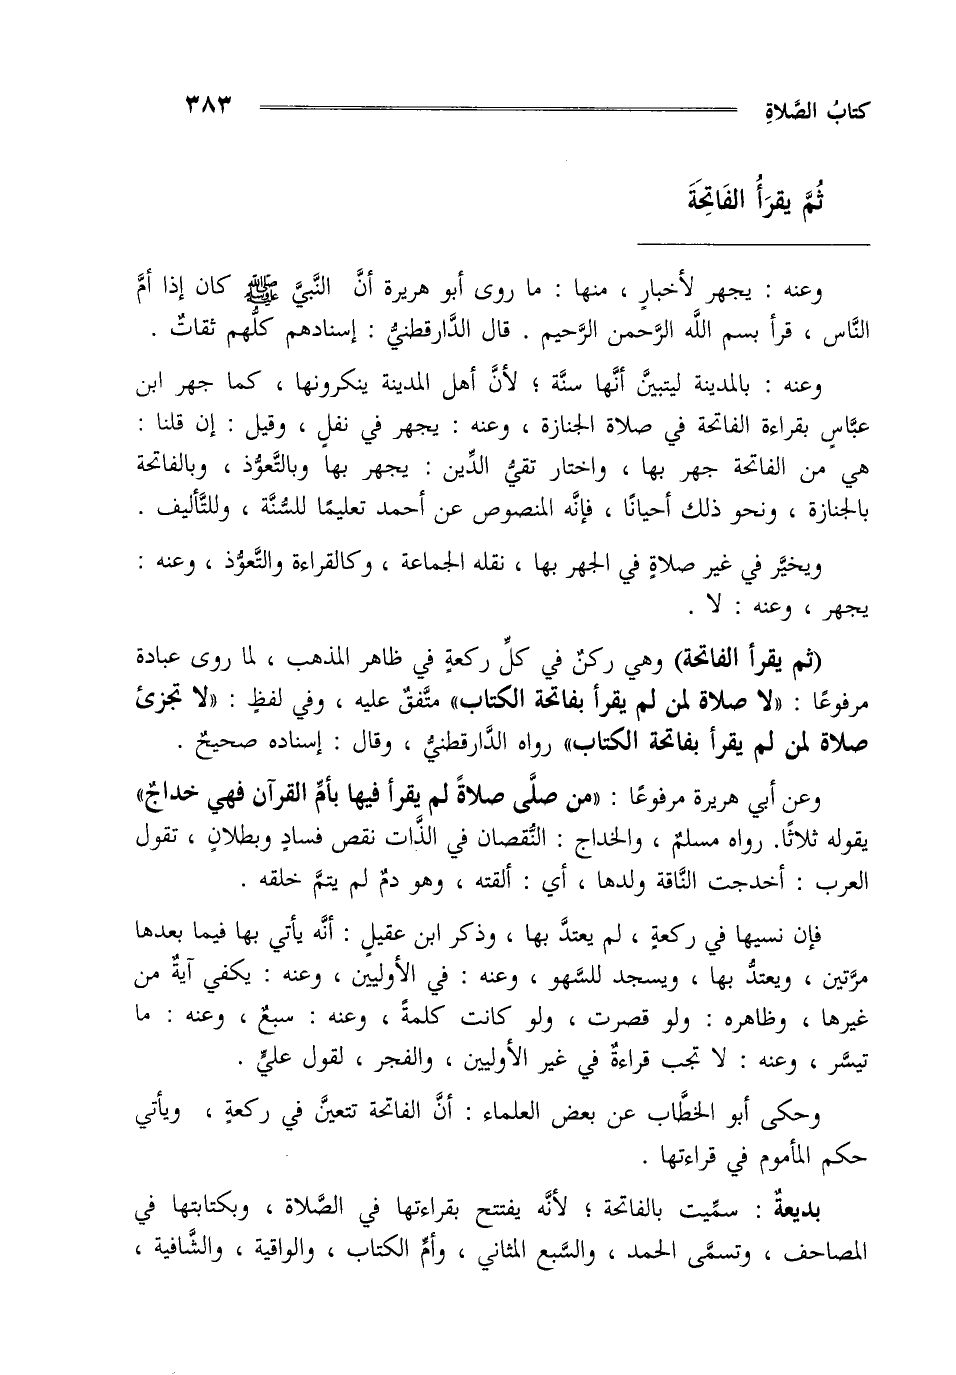 كتابُ الصَّلاةِ ٣٨٣
ثُمَّ يقرَأُ الفَاتِحَةَ
وعنه : يجهر لأخبارٍ ، منها : ما روى أبو هريرة أنَّ النَّبيَّ ﷺ كان إذا أمَّ
النَّاس ، قرأ بسم اللَّه الرَّحمن الرَّحيم . قال الدَّارقطنيُّ : إسنادهم كلُّهم ثقاتٌ .
وعنه : بالمدينة ليتبينَّ أنَّها سنَّة ؛ لأنَّ أهل المدينة ينكرونها ، كما جهر ابن
عبَّاسٍ بقراءة الفاتحة في صلاة الجنازة ، وعنه : يجهر في نفلٍ ، وقيل : إن قلنا :
هي من الفاتحة جهر بها ، واختار تقيُّ الدِّين : يجهر بها وبالتَّعوُّذ ، وبالفاتحة
بالجنازة ، ونحو ذلك أحيانًا ، فإنَّه المنصوص عن أحمد تعليمًا للسُّنَّة ، وللتَّأليف .
ويخيَّر في غير صلاةٍ في الجهر بها ، نقله الجماعة ، وكالقراءة والتَّعوُّذ ، وعنه :
يجهر ، وعنه : لا .
(ثم يقرأ الفاتحة) وهي ركنٌ في كلِّ ركعةٍ في ظاهر المذهب ، لما روى عبادة
مرفوعًا : «لا صلاة لمن لم يقرأ بفاتحة الكتاب» متَّفقٌ عليه ، وفي لفظٍ : «لا تجزئ
صلاة لمن لم يقرأ بفاتحة الكتاب» رواه الدَّارقطنيُّ ، وقال : إسناده صحيحٌ .
وعن أبي هريرة مرفوعًا : «من صلَّى صلاةً لم يقرأ فيها بأمِّ القرآن فهي خداجٌ»
يقوله ثلاثًا. رواه مسلمٌ ، والخداج : النُّقصان في الذَّات نقص فسادٍ وبطلانٍ ، تقول
العرب : أخدجت النَّاقة ولدها ، أي : ألقته ، وهو دمٌ لم يتمَّ خلقه .
فإن نسيها في ركعةٍ ، لم يعتدَّ بها ، وذكر ابن عقيلٍ : أنَّه يأتي بها فيما بعدها
مرَّتين ، ويعتدُّ بها ، ويسجد للسَّهو ، وعنه : في الأوليين ، وعنه : يكفي آيةٌ من
غيرها ، وظاهره : ولو قصرت ، ولو كانت كلمةً ، وعنه : سبعٌ ، وعنه : ما
تيسَّر ، وعنه : لا تجب قراءةٌ في غير الأوليين ، والفجر ، لقول عليٍّ .
وحكى أبو الخطَّاب عن بعض العلماء : أنَّ الفاتحة تتعينَّ في ركعةٍ ، ويأتي
حكم المأموم في قراءتها .
بديعةٌ : سمِّيت بالفاتحة ؛ لأنَّه يفتتح بقراءتها في الصَّلاة ، وبكتابتها في
المصاحف ، وتسمَّى الحمد ، والسَّبع المثاني ، وأمَّ الكتاب ، والواقية ، والشَّافية ،